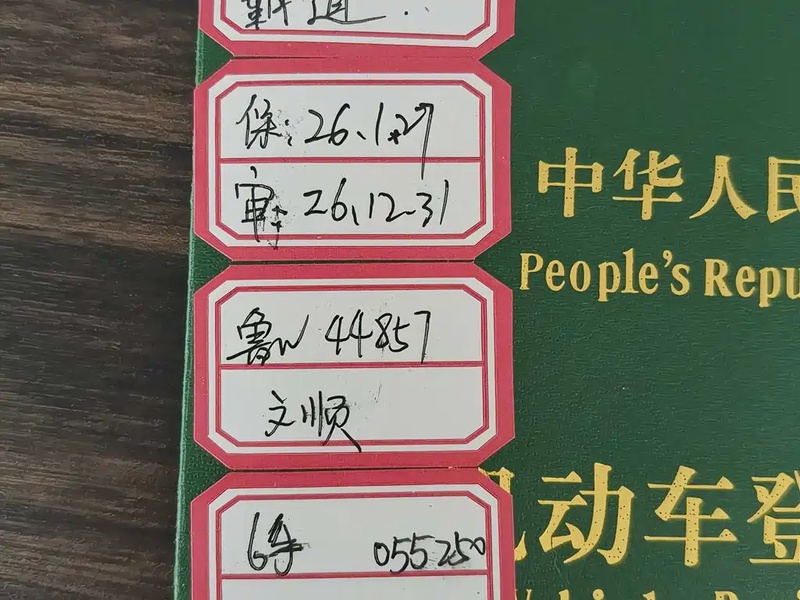 霸道.
保: 26.1.27
审: 26.12.31
鲁W 44857
文顺
6年 055250
中华人民
People's Repu
机动车登